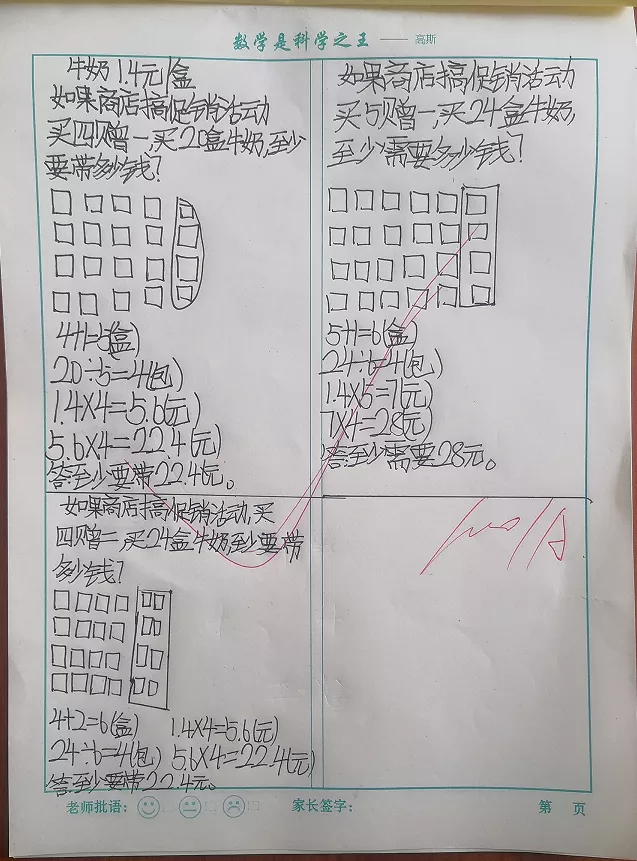 数学是科学之王 —— 高斯
牛奶1.4元/盒
如果商店搞促销活动
买四赠一,买20盒牛奶,至少
要带多少钱?
4+1=5(盒)
20÷5=4(包)
1.4×4=5.6(元)
5.6×4=22.4(元)
答:至少要带22.4元。
如果商店搞促销活动
买5赠一,买24盒牛奶,
至少需要多少钱?
5+1=6(盒)
24÷6=4(包)
1.4×5=7(元)
7×4=28(元)
答:至少需要28元。
如果商店搞促销活动,买
四赠二,买24盒牛奶至少要带
多少钱?
4+2=6(盒) 1.4×4=5.6(元)
24÷6=4(包) 5.6×4=22.4(元)
答:至少要带22.4元。
老师批语: 家长签字: 第 页